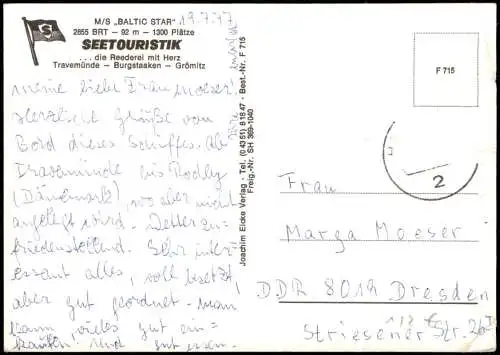 M/S „BALTIC STAR"
2855 BRT – 92 m – 1300 Plätze
SEETOURISTIK
... die Reederei mit Herz
Travemünde – Burgstaaken – Grömitz
S
19.7.
meine liebe Frau Moeser!
Herzliche Grüße von
Bord dieses Schiffes. Ab
Travemünde bis Rødby
(Dänemark), wo aber nicht
angelegt wird. Wetter zu-
friedenstellend. Sehr inter-
essant alles, voll besetzt,
aber gut geordnet - man
kann vieles gut ein-
kaufen! Und gut essen.
Joachim Eicke Verlag - Tel. (0 43 51) 8 18 47 - Best.-Nr. F 715
Freig.-Nr. SH 369-1040
F 715
2
Frau
Marga Moeser
DDR 8019 Dresden
Striesener Str. 20